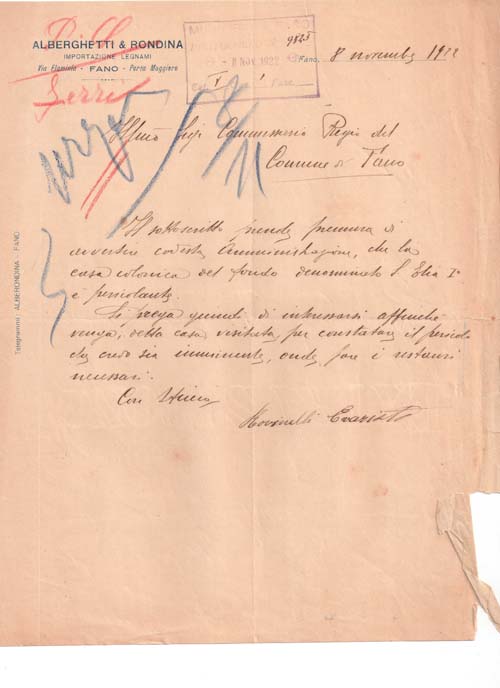 ALBERGHETTI & RONDINA
IMPORTAZIONE LEGNAMI
Via Flaminia - FANO - Porta Maggiore
9825
8 NOV. 1922
Fano, 8 novembre 1922
Ill.mo Sig. Commissario Regio del
Comune di Fano
Il sottoscritto prende premura di
avvertire codesta Amministrazione, che la
casa colonica del fondo denominato S. Elia I°
è pericolante.
Si prega quindi di interessarsi affinché
venga, detta casa visitata per constatare il pericolo
che credo sia imminente, onde fare i restauri
necessari.
Con stima
Evaristo
Telegrammi: ALBERONDINA - FANO